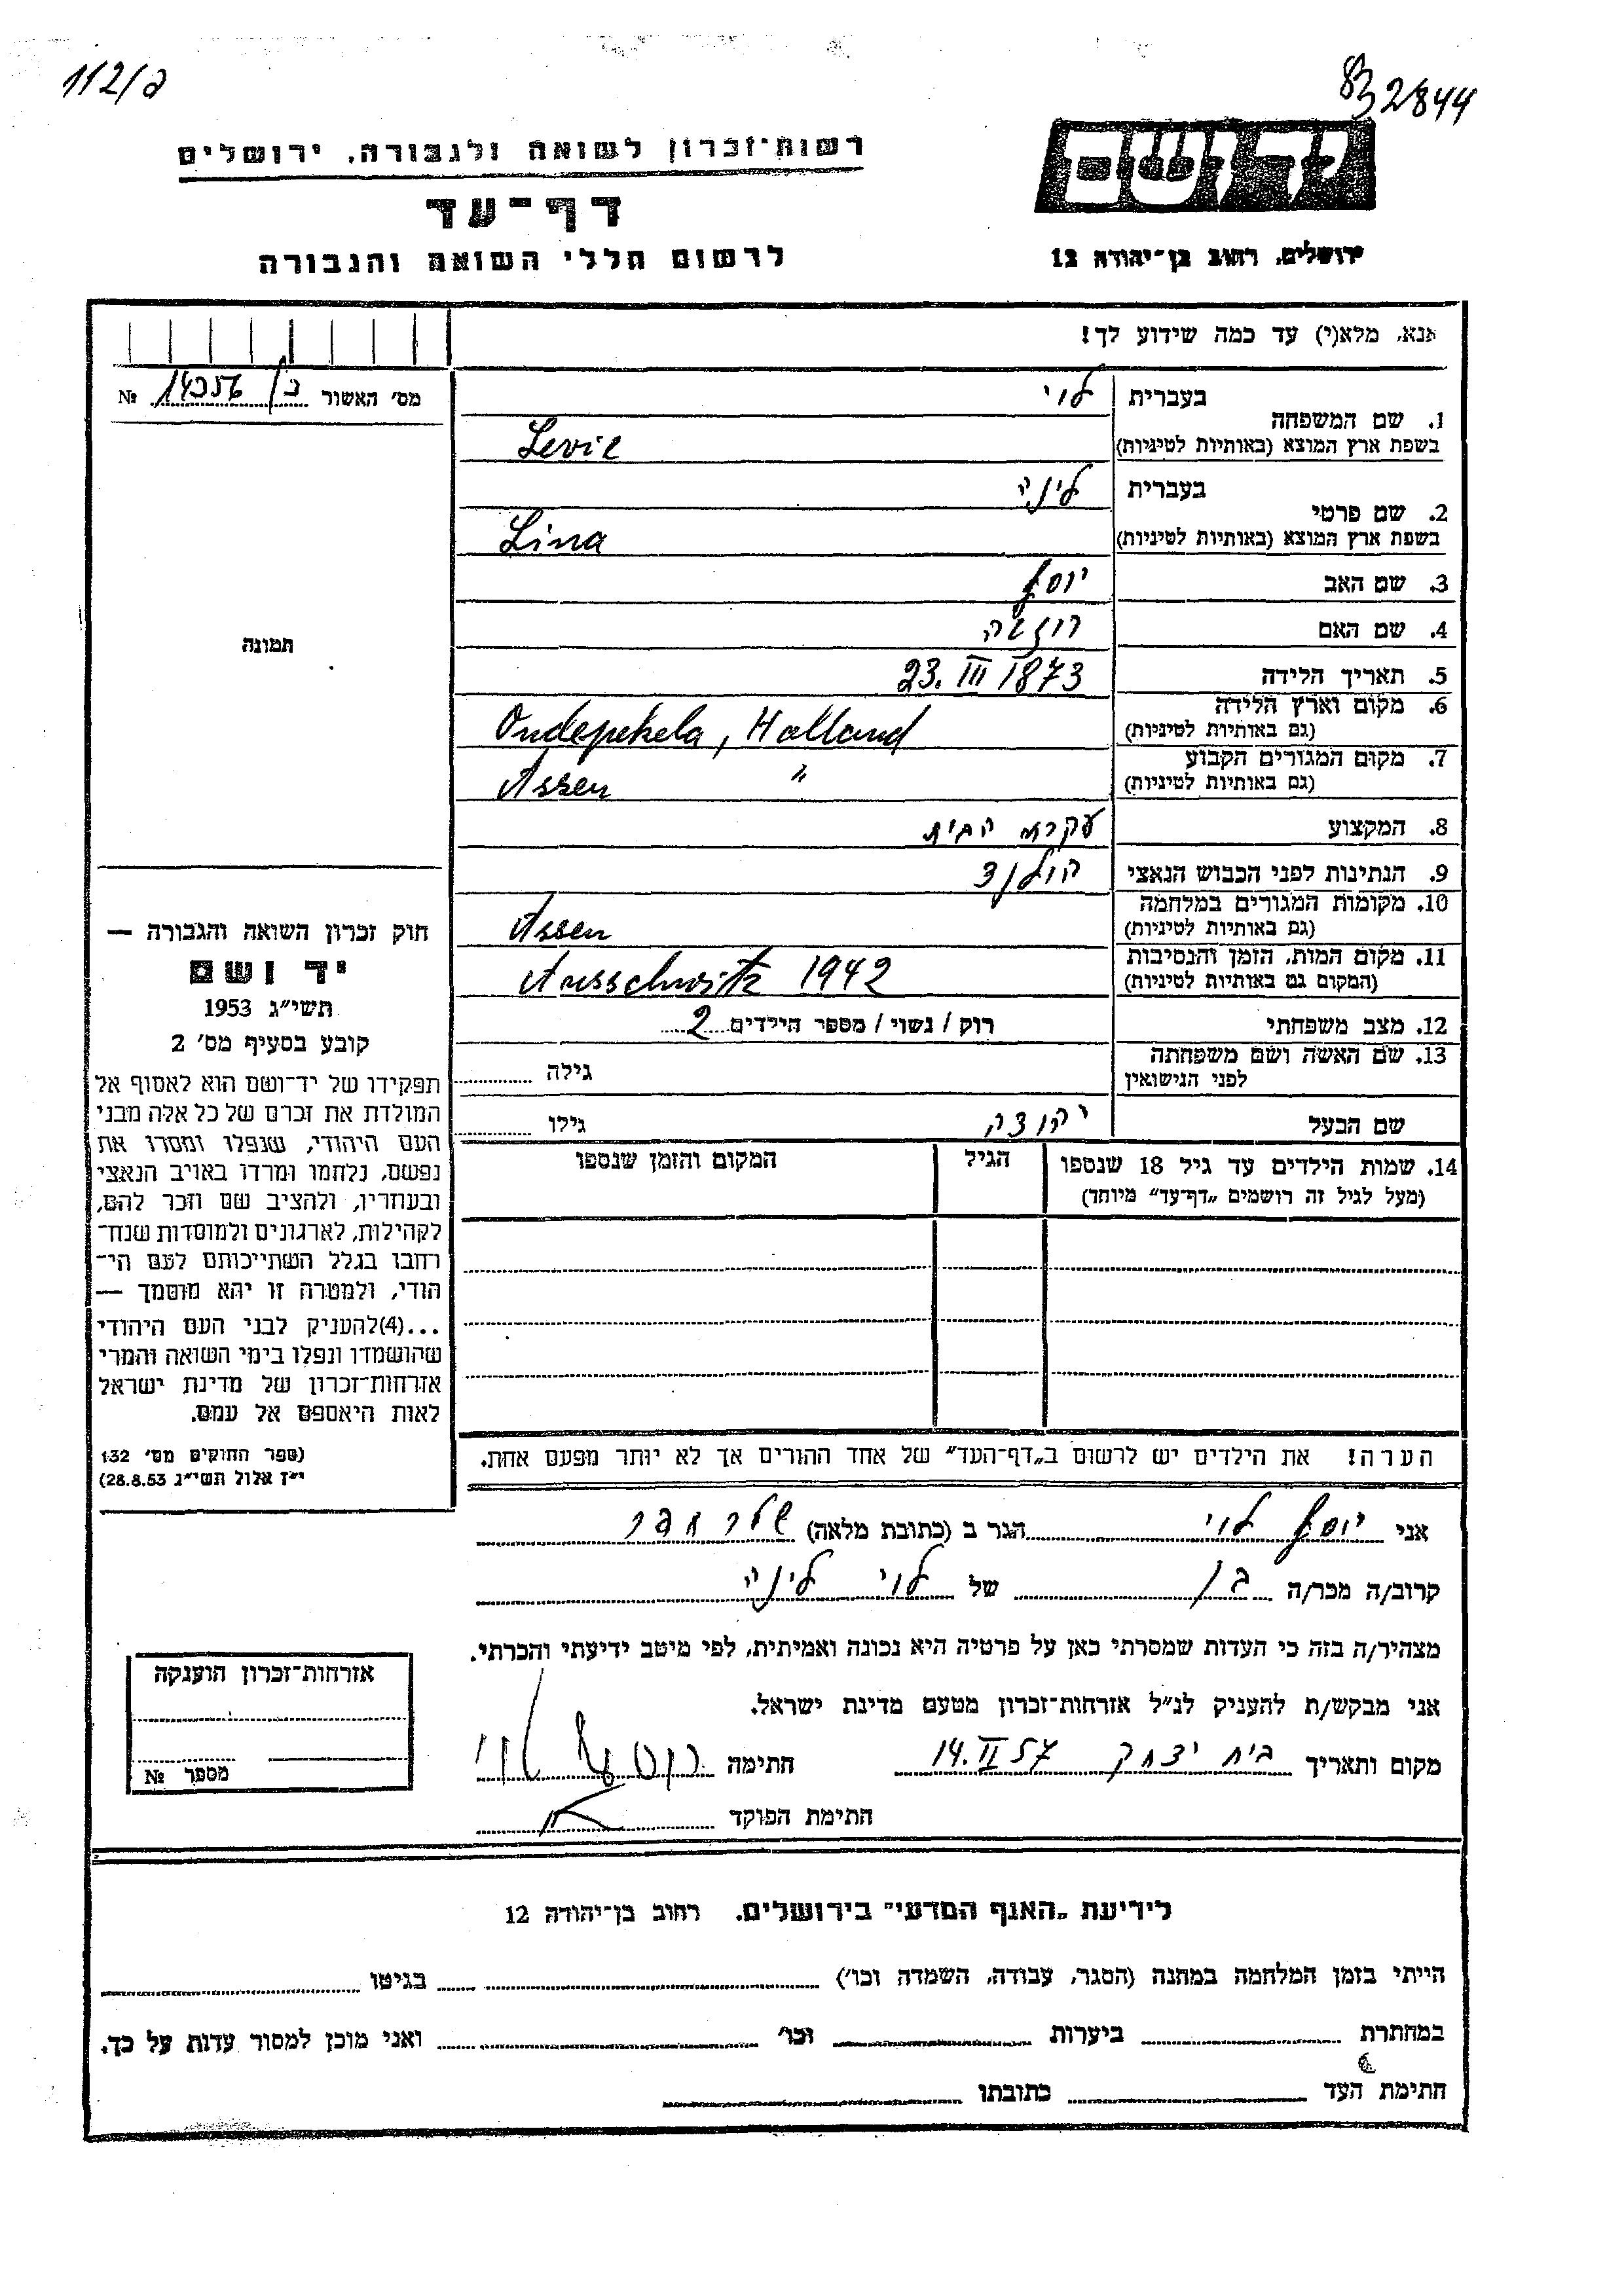 112/ה
832844
רשות־זכרון לשואה ולגבורה, ירושלים
דף־עד
לרשום חללי השואה והגבורה
ידושם
ירושלים, רחוב בן־יהודה 12
אנא, מלא(י) עד כמה שידוע לך!
מס׳ האשור №
1. שם המשפחה
בעברית לוי
בשפת ארץ המוצא (באותיות לטיניות) Levie
2. שם פרטי
בעברית לינה
בשפת ארץ המוצא (באותיות לטיניות) Lina
3. שם האב יוסף
4. שם האם רוזטה
5. תאריך הלידה 23. III 1873
6. מקום וארץ הלידה (גם באותיות לטיניות) Oudepekela, Holland
7. מקום המגורים הקבוע (גם באותיות לטיניות) Assen "
8. המקצוע עקרת הבית
9. הנתינות לפני הכבוש הנאצי הולנד
10. מקומות המגורים במלחמה (גם באותיות לטיניות) Assen
11. מקום המות, הזמן והנסיבות (המקום גם באותיות לטיניות) Ausschwitz 1942
12. מצב משפחתי רוק / נשוי / מספר הילדים 2
13. שם האשה ושם משפחתה לפני הנישואין גילה
שם הבעל יהודה גילו
14. שמות הילדים עד גיל 18 שנספו
(מעל לגיל זה רושמים „דף־עד” מיוחד)
הגיל
המקום והזמן שנספו
הערה! את הילדים יש לרשום ב„דף־העד” של אחד ההורים אך לא יותר מפעם אחת.
תמונה
חוק זכרון השואה והגבורה —
יד ושם
תשי״ג 1953
קובע בסעיף מס׳ 2
תפקידו של יד־ושם הוא לאסוף אל
המולדת את זכרם של כל אלה מבני
העם היהודי, שנפלו ומסרו את
נפשם, נלחמו ומרדו באויב הנאצי
ובעוזריו, ולהציב שם וזכר להם,
לקהילות, לארגונים ולמוסדות שנח־
רחבו בגלל השתייכותם לעם הי־
הודי, ולמטרה זו יהא מוסמך —
...(4)להעניק לבני העם היהודי
שהושמדו ונפלו בימי השואה והמרי
אזרחות־זכרון של מדינת ישראל
לאות היאספם אל עמם.
(ספר החוקים מס׳ 132
י״ז אלול תשי״ג 28.8.53)
אני יוסף לוי הגר ב (כתובת מלאה) שער חפר
קרוב/ה מכר/ה בן של לוי לינה
מצהיר/ה בזה כי העדות שמסרתי כאן על פרטיה היא נכונה ואמיתית, לפי מיטב ידיעתי והכרתי.
אני מבקש/ת להעניק לנ״ל אזרחות־זכרון מטעם מדינת ישראל.
מקום ותאריך בית יצחק 14. II 57 חתימה
חתימת הפוקד
אזרחות־זכרון הוענקה
מספר №
לידיעת „האגף המדעי” בירושלים. רחוב בן־יהודה 12
הייתי בזמן המלחמה במחנה (הסגר, עבודה, השמדה וכו׳) בגיטו
במחתרת ביערות וכו׳ ואני מוכן למסור עדות על כך.
חתימת העד כתובתו